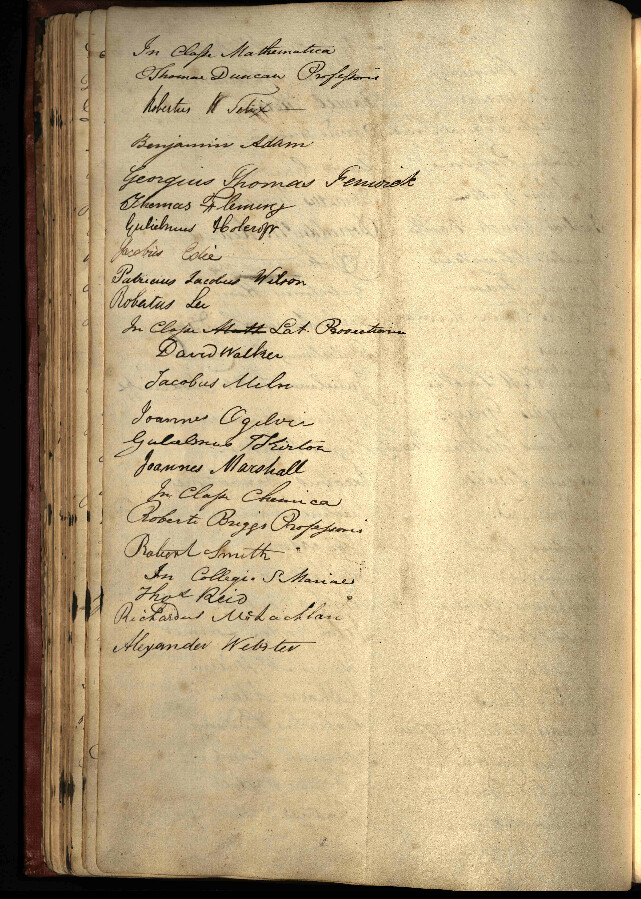 In Classe Mathematica
Thomae Duncan Professoris
Robertus H Felix
Benjamin Adam
Georgius Thomas Fenwick
Thomas Fleming
Gulielmus Holcroft
Jacobus Edie
Patricius Jacobus Wilson
Robertus Lee
In Classe Math Lat. Provectiorum
David Walker
Jacobus Miln
Joannes Ogilvie
Gulielmus Skirton
Joannes Marshall
In Classe Chemica
Roberti Briggs Professoris
Robert Smith
In Collegio S. Mariae
Thos Reid
Richardus McLachlan
Alexander Webster